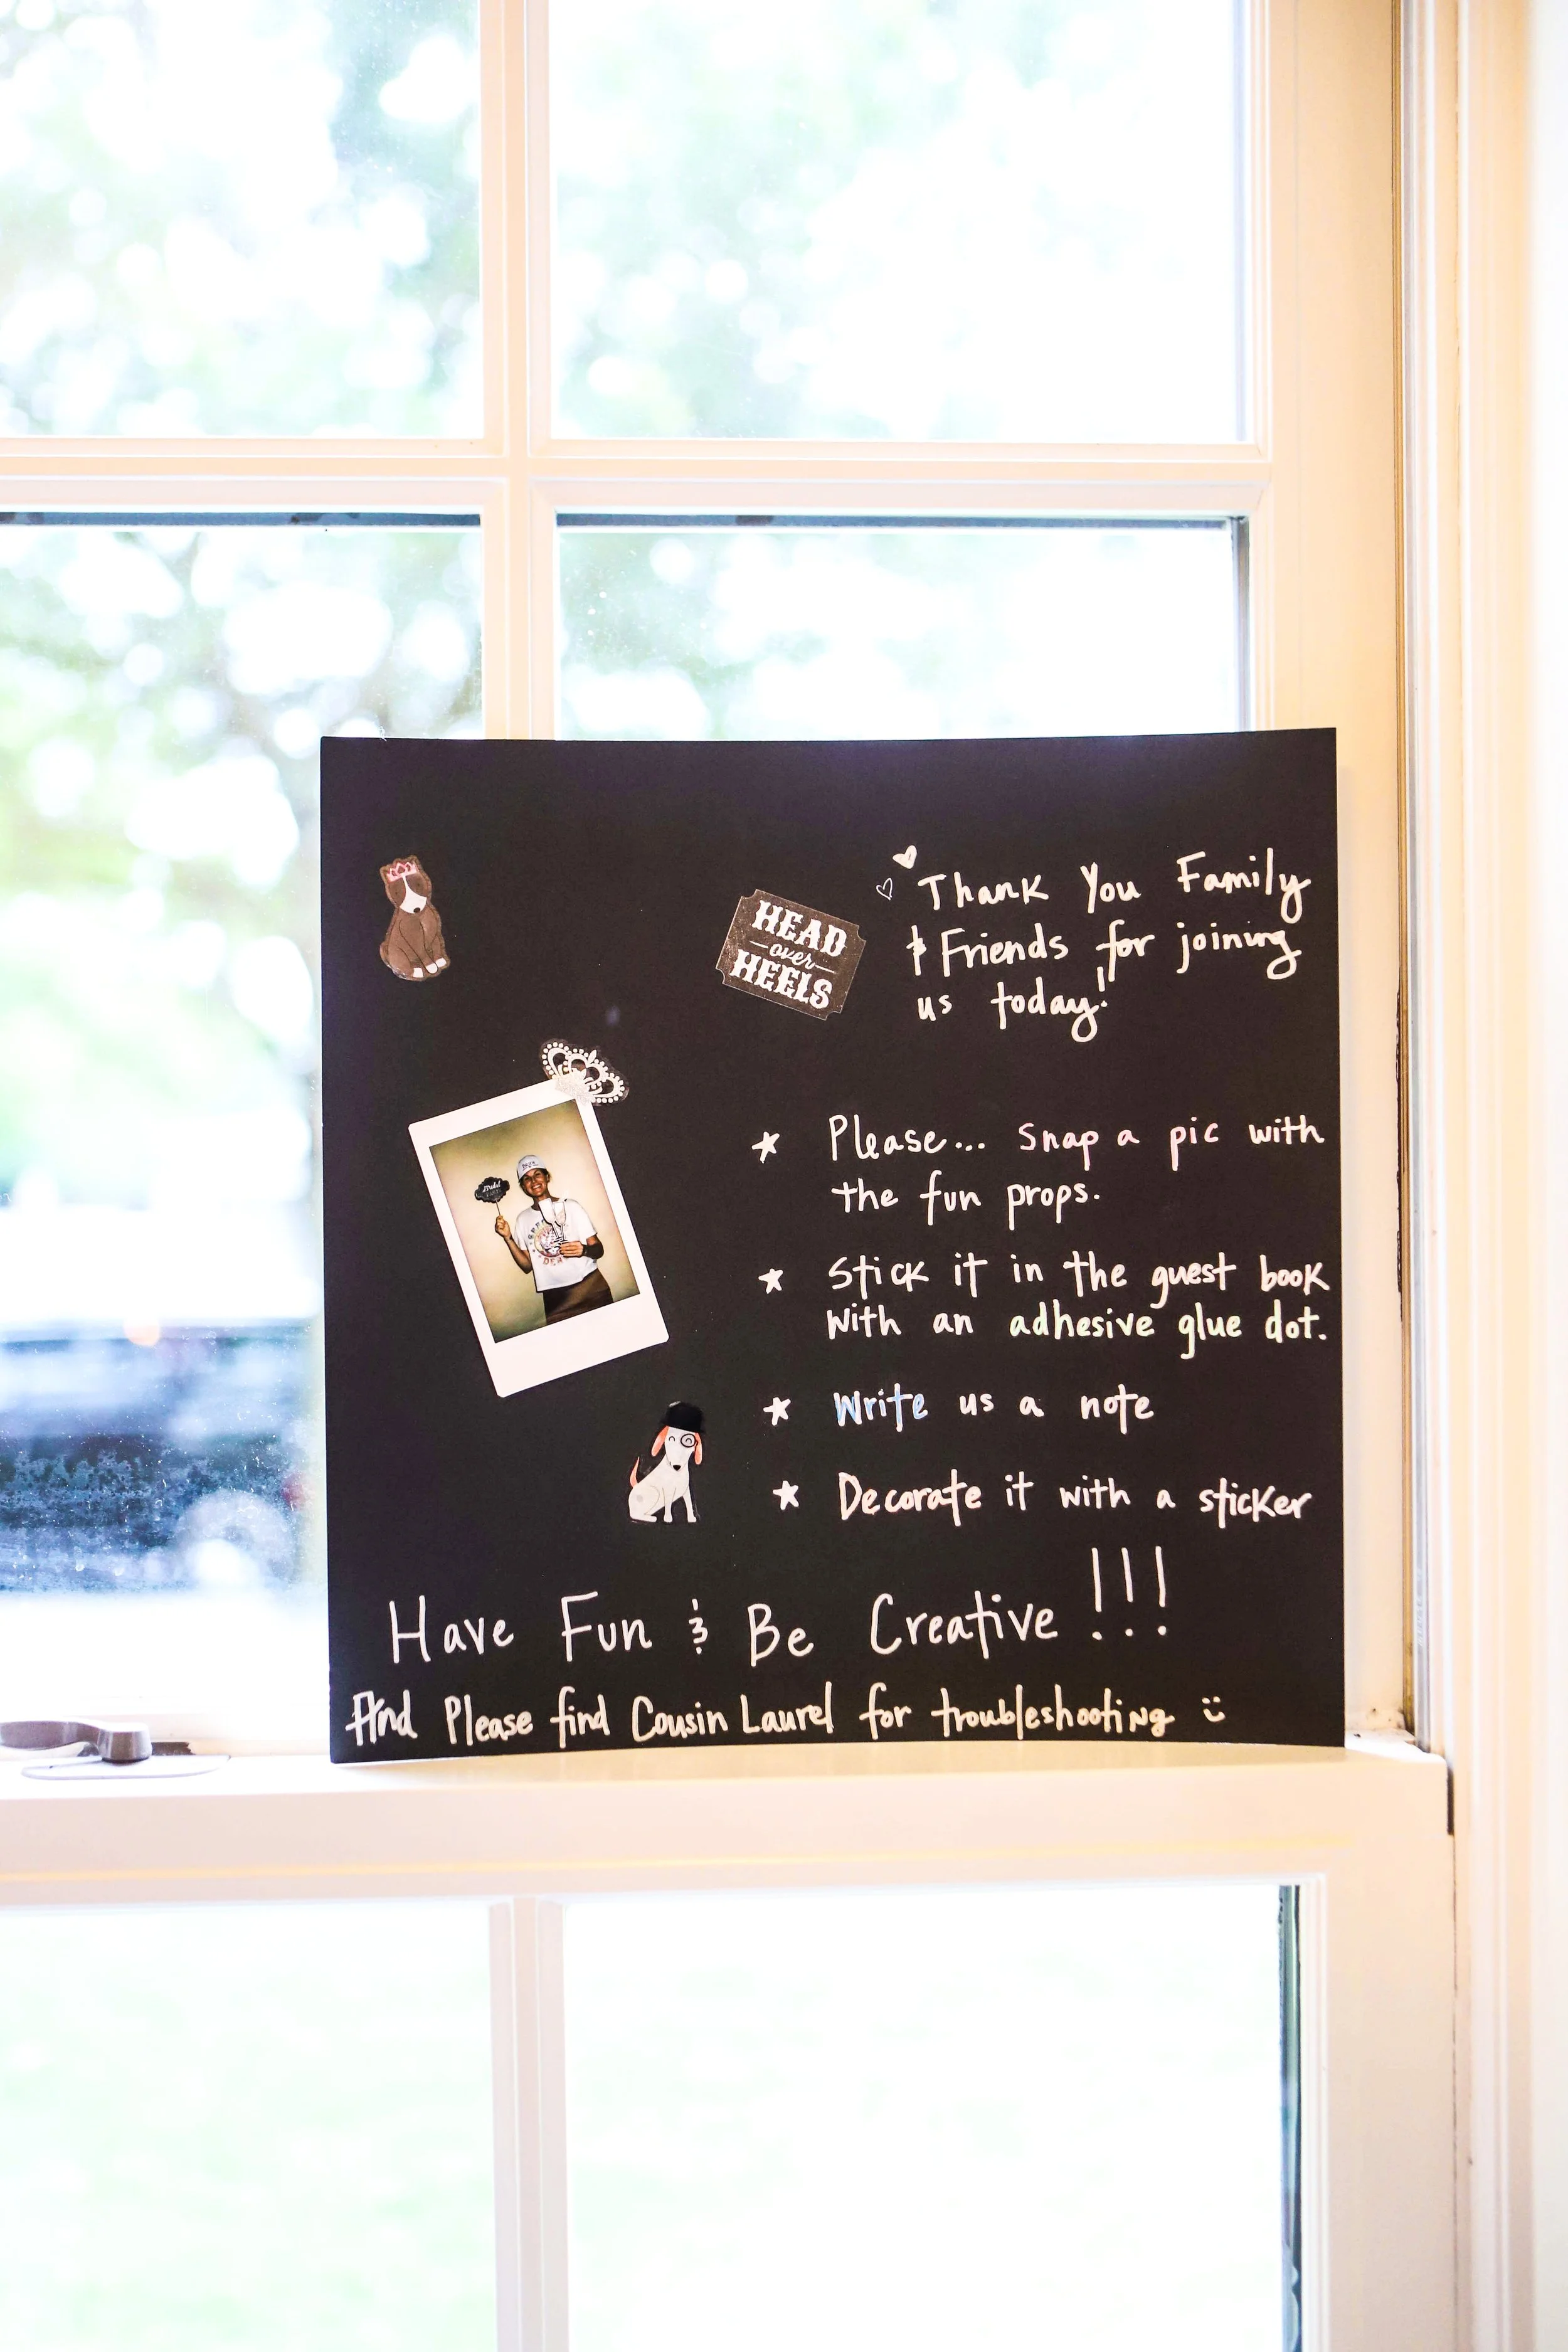 HEAD
over
HEELS
Thank You Family
& Friends for joining
us today!
Please... Snap a pic with
the fun props.
Stick it in the guest book
with an adhesive glue dot.
Write us a note
Decorate it with a sticker
Have Fun & Be Creative!!!
And Please find Cousin Laurel for troubleshooting